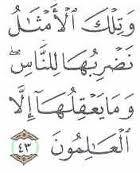 وَتِلْكَ ٱلْأَمْثَـٰلُ
نَضْرِبُهَا لِلنَّاسِ ۖ
وَمَا يَعْقِلُهَآ إِلَّا
ٱلْعَـٰلِمُونَ ٤٣